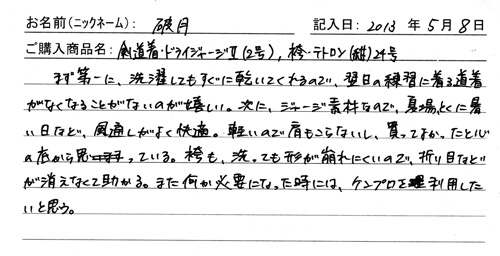 お名前(ニックネーム): 破月 記入日: 2013 年 5 月 8 日
ご購入商品名: 剣道着・ドライジャージⅡ(2号), 袴・テトロン(紺)24号
まず第一に、洗濯してもすぐに乾いてくれるので、翌日の練習に着る道着
がなくなることがないのが嬉しい。次に、ジャージ素材なので、夏場とくに暑
い日など、風通しがよく快適。軽いので肩もこらないし、買ってよかったと心
の底から思っている。袴も、洗っても形が崩れにくいので、折り目など
が消えなくて助かる。また何か必要になった時には、ケンプロを利用した
いと思う。